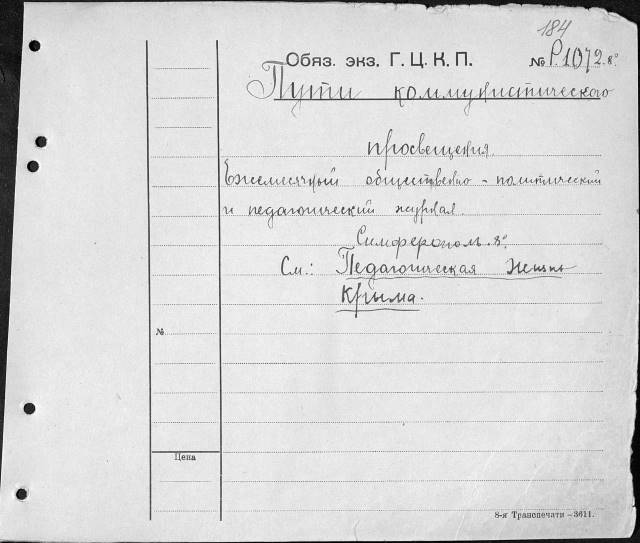 184
Обяз. экз. Г. Ц. К. П. № Р.1072. 8°
Пути коммунистического
просвещения.
Ежемесячный общественно-политический
и педагогический журнал.
Симферополь. 8°.
См.: Педагогическая Жизнь
Крыма.
№
Цена
8-я Транспечати – 3611.